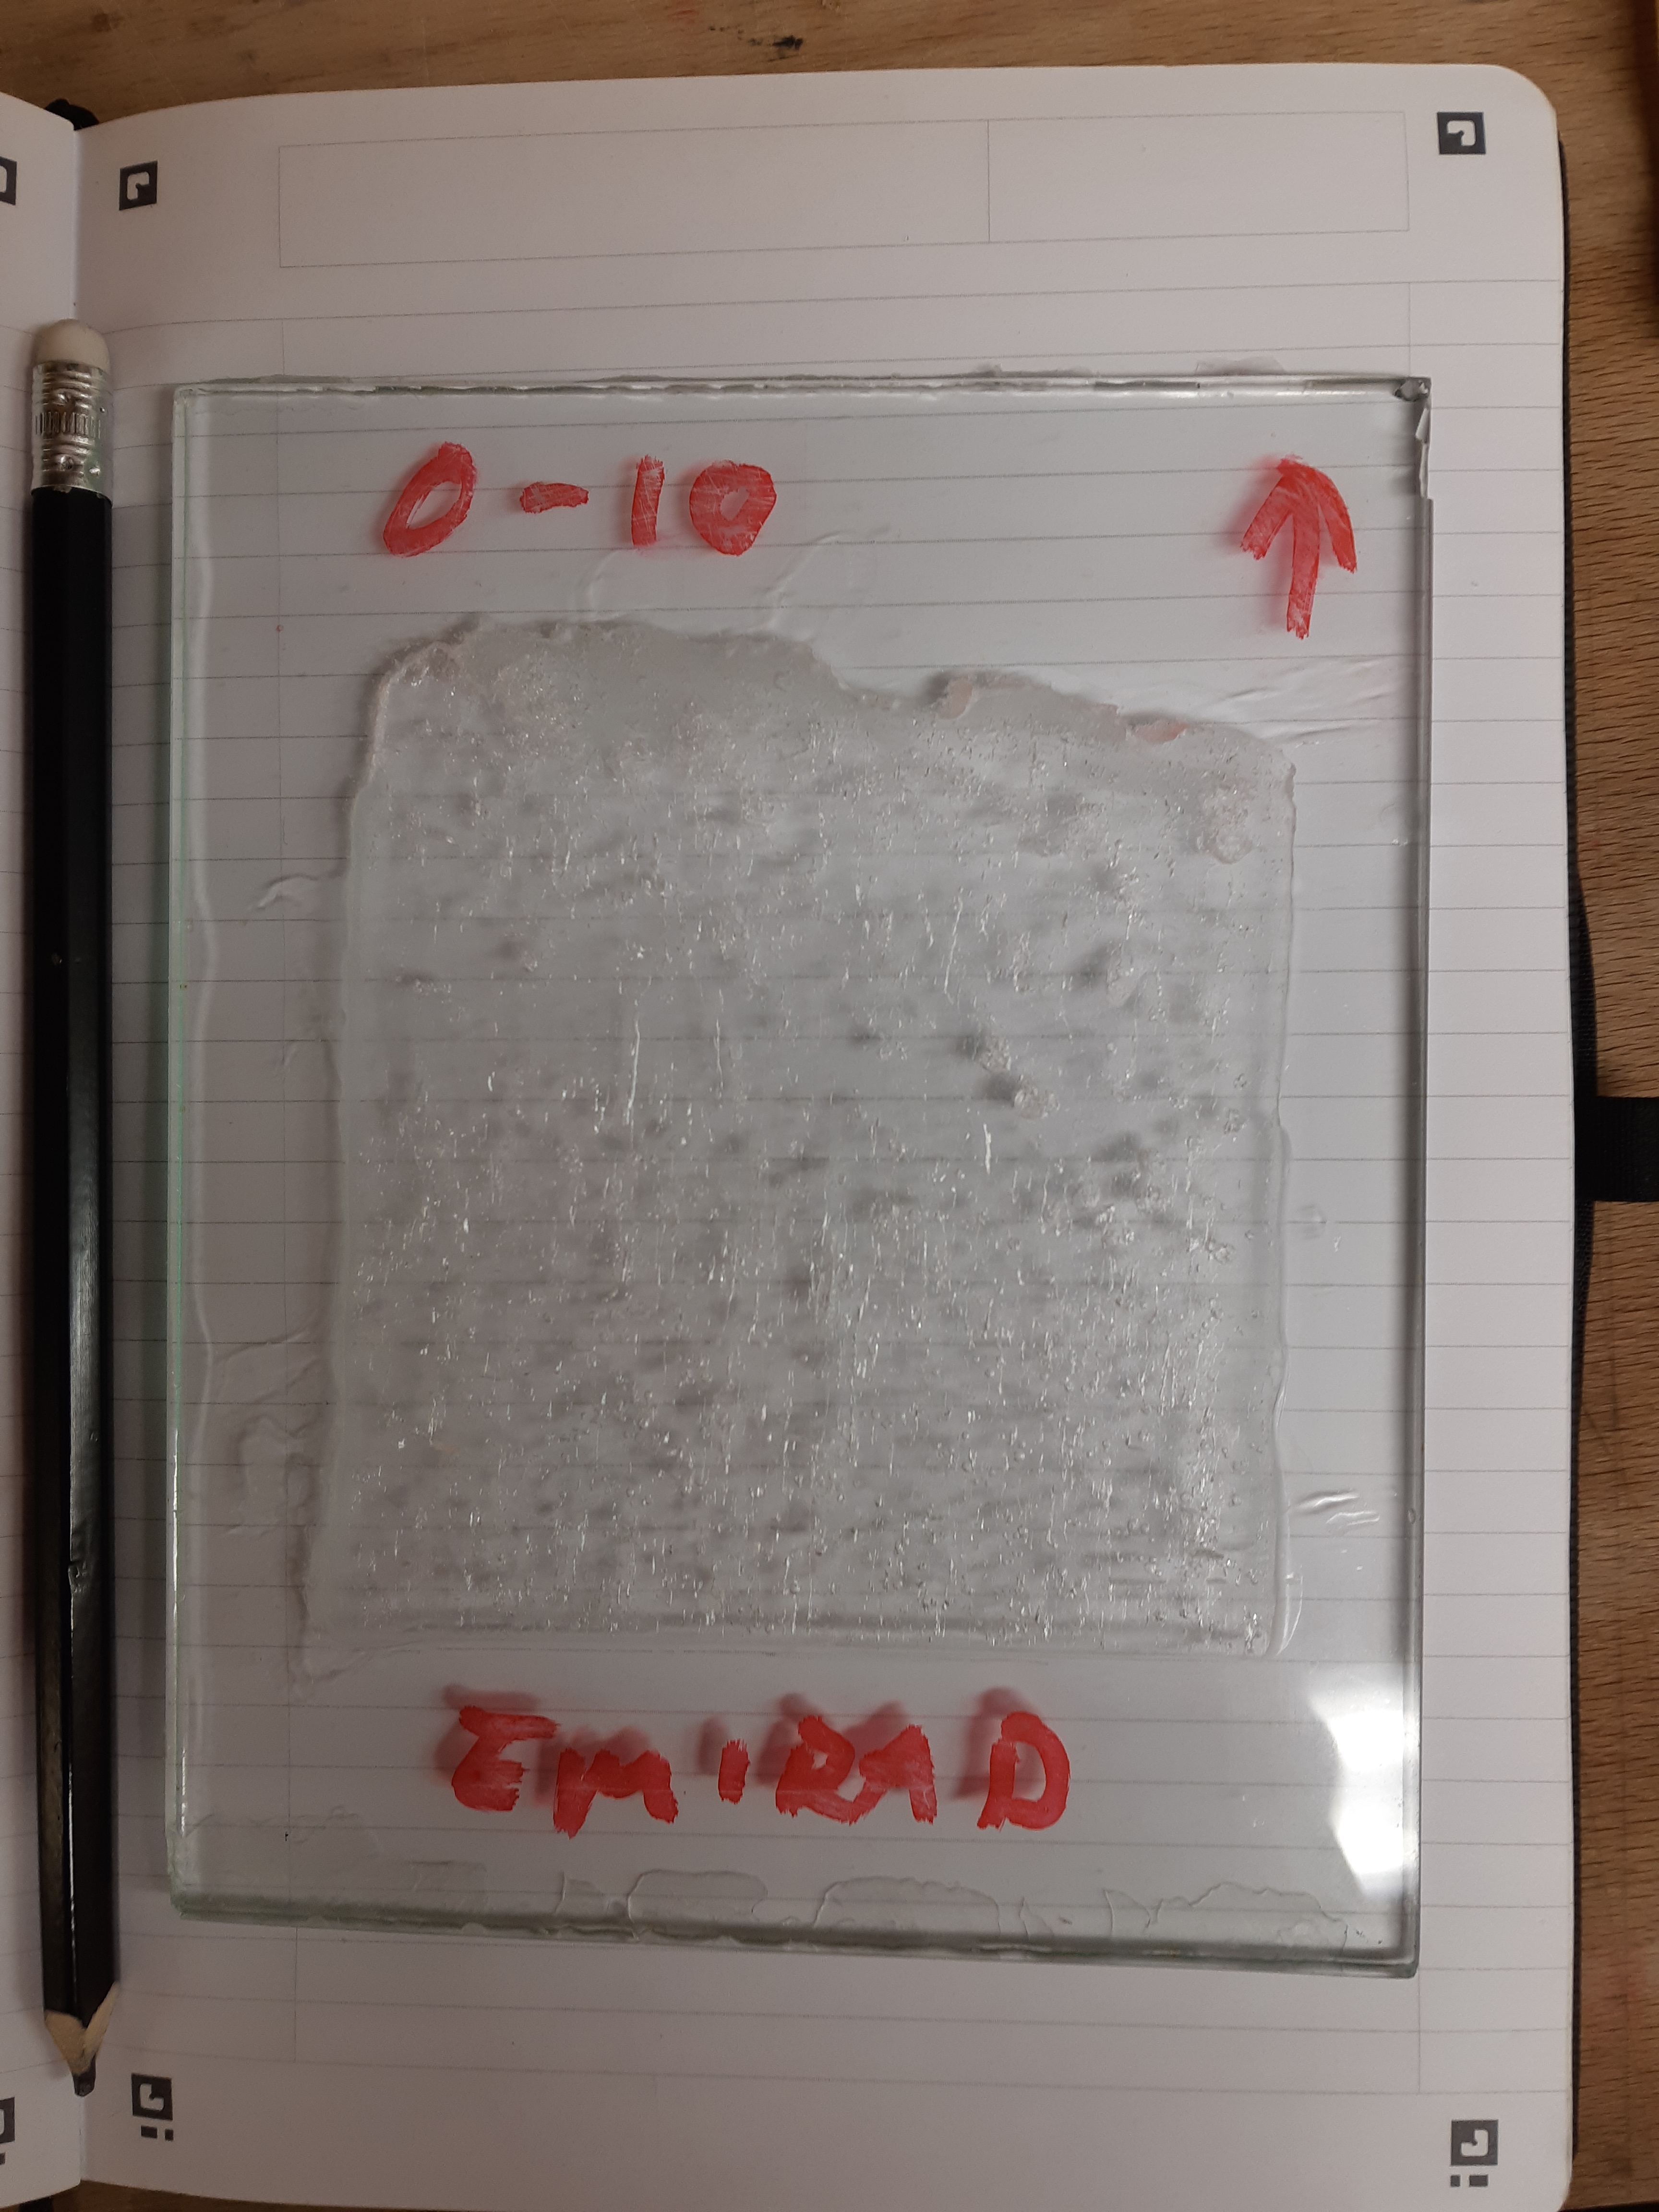 0-10 ↑
EMIRAD